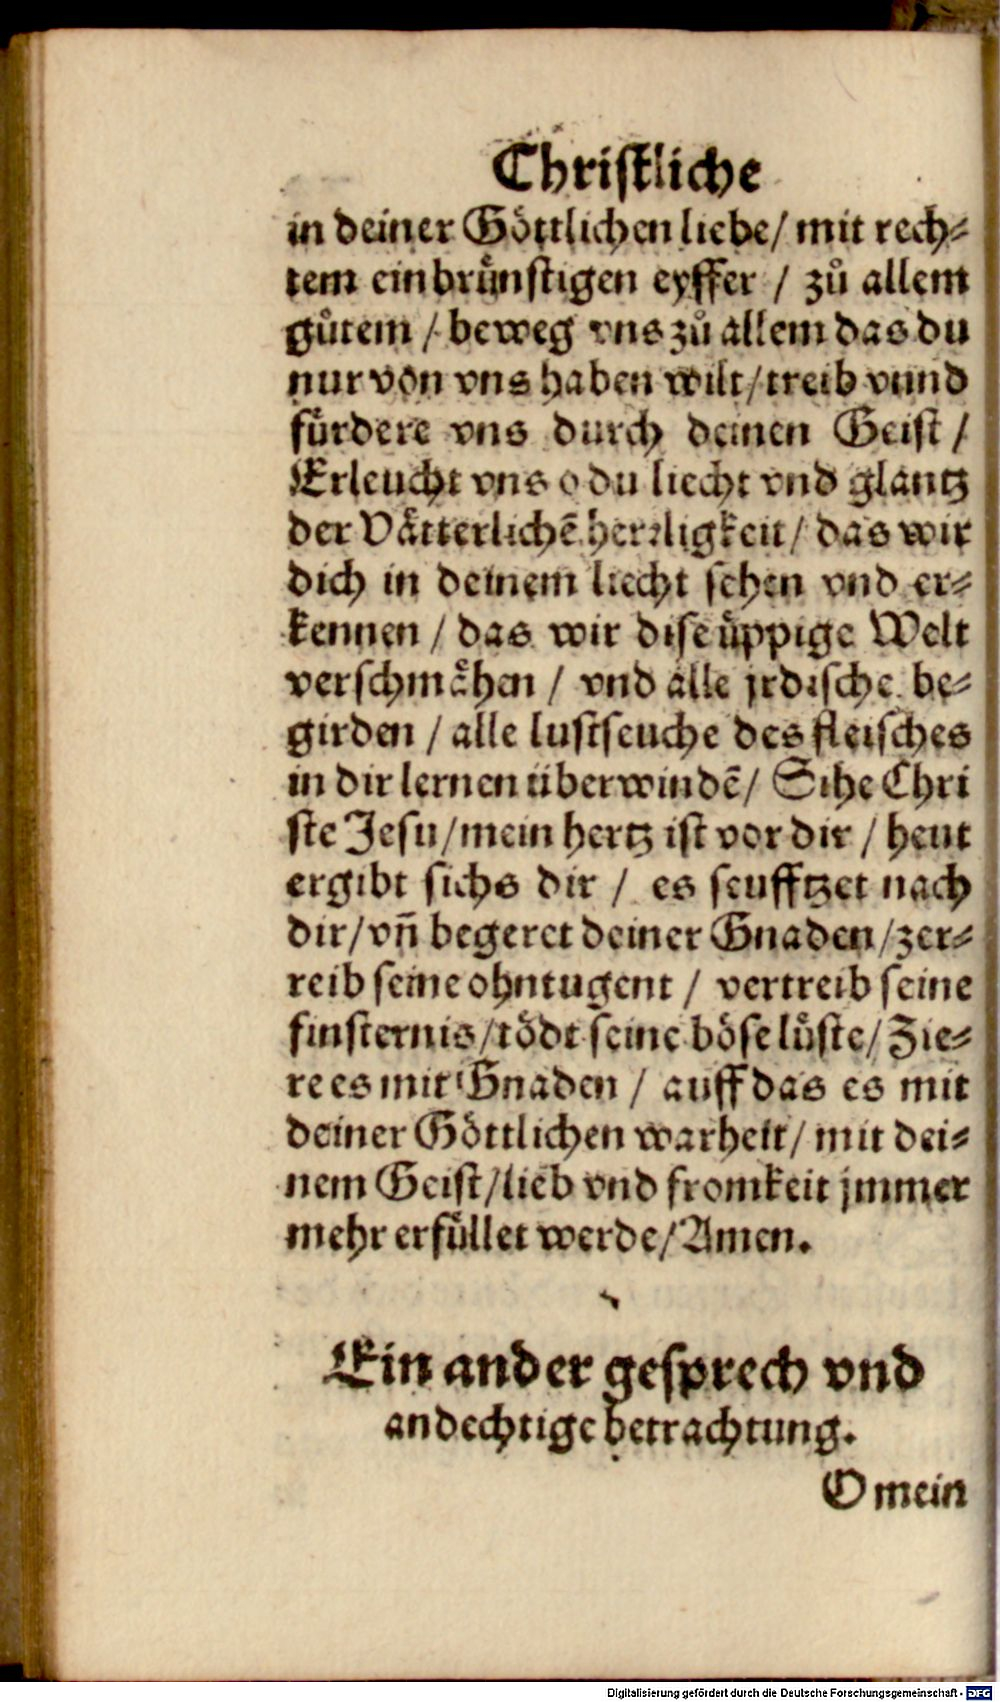 Christliche
in deiner Göttlichen liebe/ mit rech⸗
tem einbrünstigen eyffer / zů allem
gůtem / beweg vns zů allem das du
nur von vns haben wilt/treib vnnd
fürdere vns durch deinen Geist /
Erleucht vns o du liecht vnd glantz
der Vätterlichẽ herꝛligkeit/ das wir
dich in deinem liecht sehen vnd er⸗
kennen / das wir dise üppige Welt
verschmähen / vnd alle jrdische be⸗
girden / alle lustseuche des fleisches
in dir lernen überwindẽ/ Sihe Chri
ste Jesu/mein hertz ist vor dir / heut
ergibt sichs dir / es seufftzet nach
dir/vñ begeret deiner Gnaden/zer⸗
reib seine ohntugent / vertreib seine
finsternis/tödt seine böse lüste/ Zie⸗
re es mit Gnaden / auff das es mit
deiner Göttlichen warheit/ mit dei⸗
nem Geist/lieb vnd fromkeit jmmer
mehr erfüllet werde/Amen.
Ein ander gesprech vnd
andechtige betrachtung.
O mein
Digitalisierung gefördert durch die Deutsche Forschungsgemeinschaft - DFG